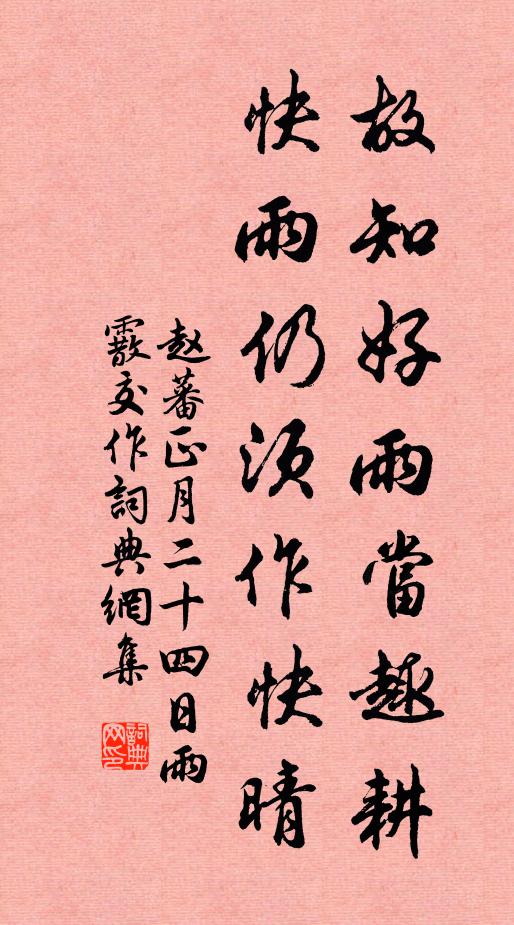 故知好雨當趣耕
快雨仍須作快晴
赵蕃正月二十四日雨
霰交作詞典網集
詞典网印